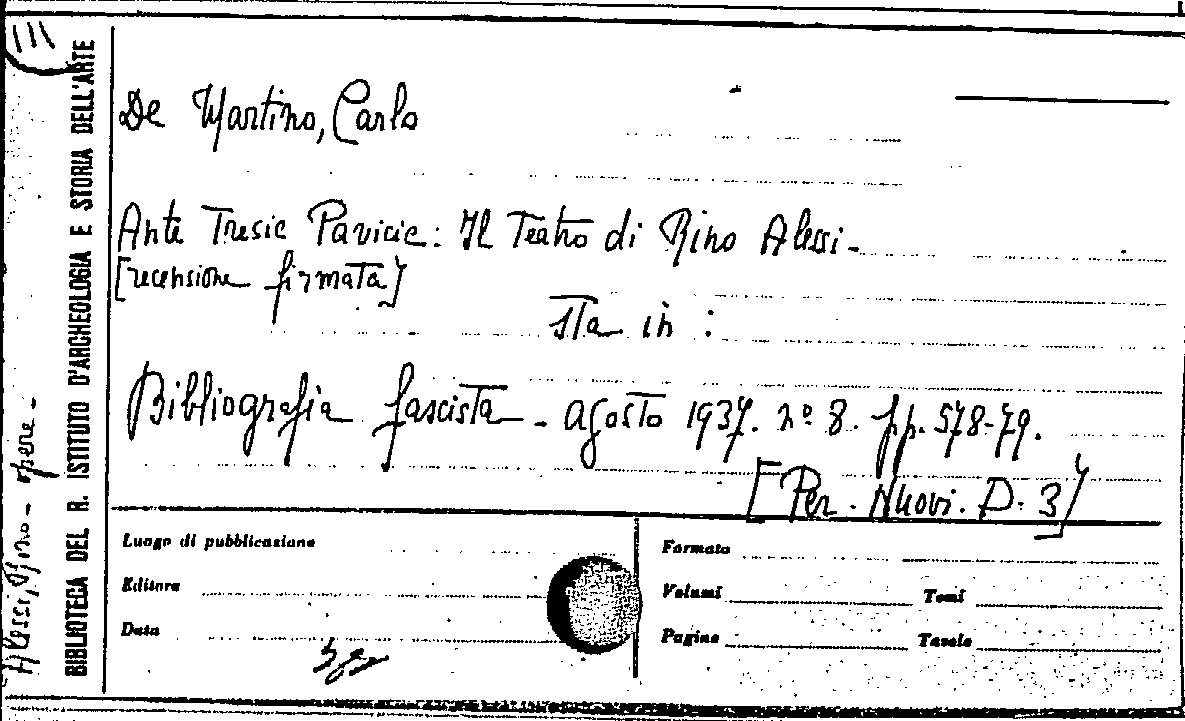 III
Alessi, Rino - opere -
BIBLIOTECA DEL R. ISTITUTO D'ARCHEOLOGIA E STORIA DELL'ARTE
De Martino, Carlo
Ante Tresic Pavicic: Il Teatro di Rino Alessi -
[recensione firmata]
sta in :
Bibliografia fascista - agosto 1937. nº 8. pp. 578-79.
[Per. Nuovi. D. 3]
Luogo di pubblicazione
Editore
Data
Formato
Volumi Tomi
Pagine Tavole